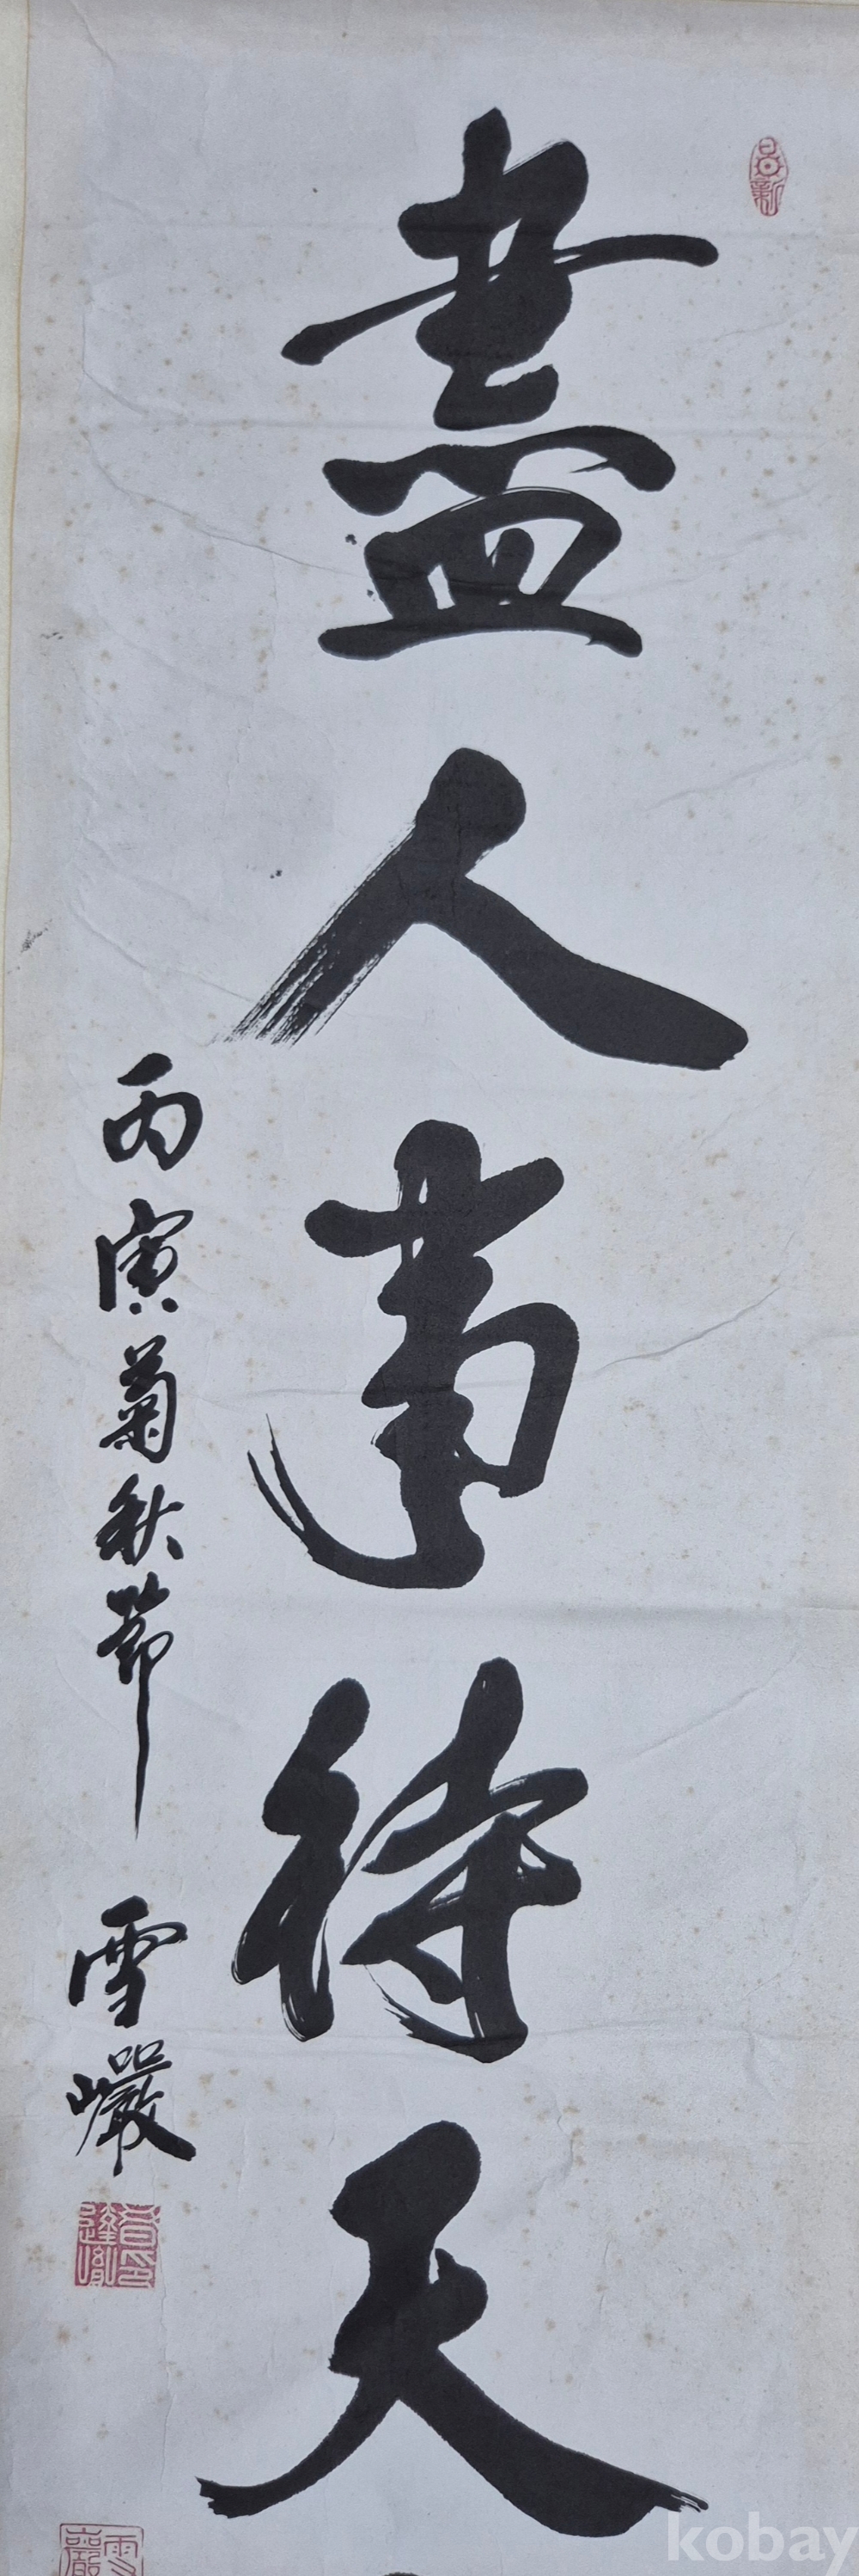 盡人事待天
丙寅菊秋節 雪巖
日新
雪巖
kobay